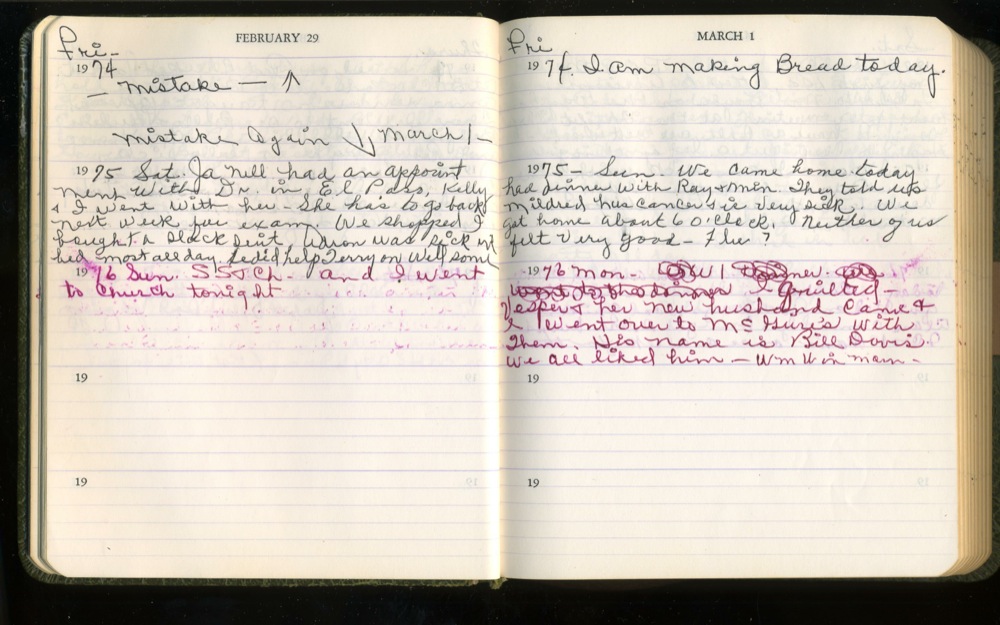 FEBRUARY 29
Fri-
1974
- mistake - ↑
mistake Again ↓ March 1-
1975 Sat. Ja Nell had an appoint
ment with Dr. in El Paso, Kelly
& I went with her - She has to go back
next week for exam. We shopped I
bought a black suit. was sick in
bed most all day. did help Terry on well some
1976 Sun. S S & Ch. - and I went
to Church tonight
19
19
MARCH 1
Fri
1974. I am making Bread today.
1975 - Sun. We came home today
had dinner with Ray & men. They told us
Mildred has cancer & is very sick. We
got home about 6 o'clock. Neither of us
felt very good - Flu?
1976 mon.
I quilted -
Vesper & her new husband came &
I went over to Mc Guire's with
them. His name is Bill Davis.
we all liked him -
19
19